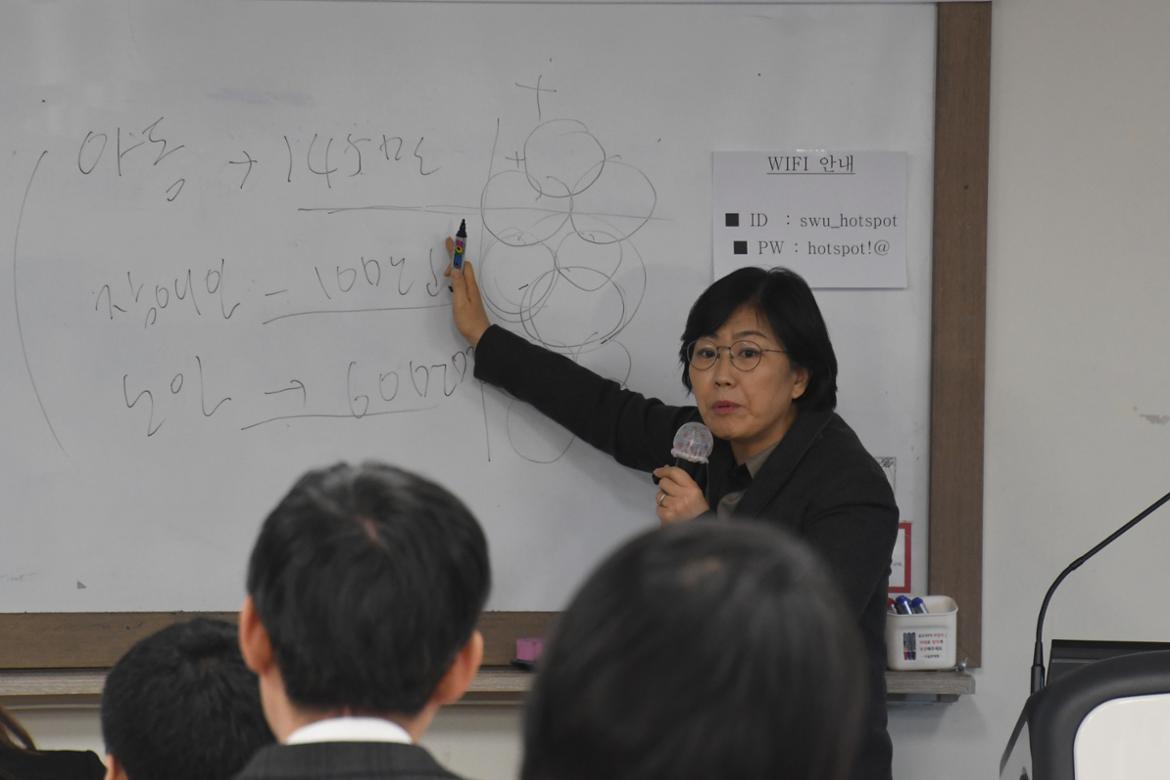 아동 → 145만
장애인 - 100만
노인 → 60만
WIFI 안내
■ ID : swu_hotspot
■ PW : hotspot!@